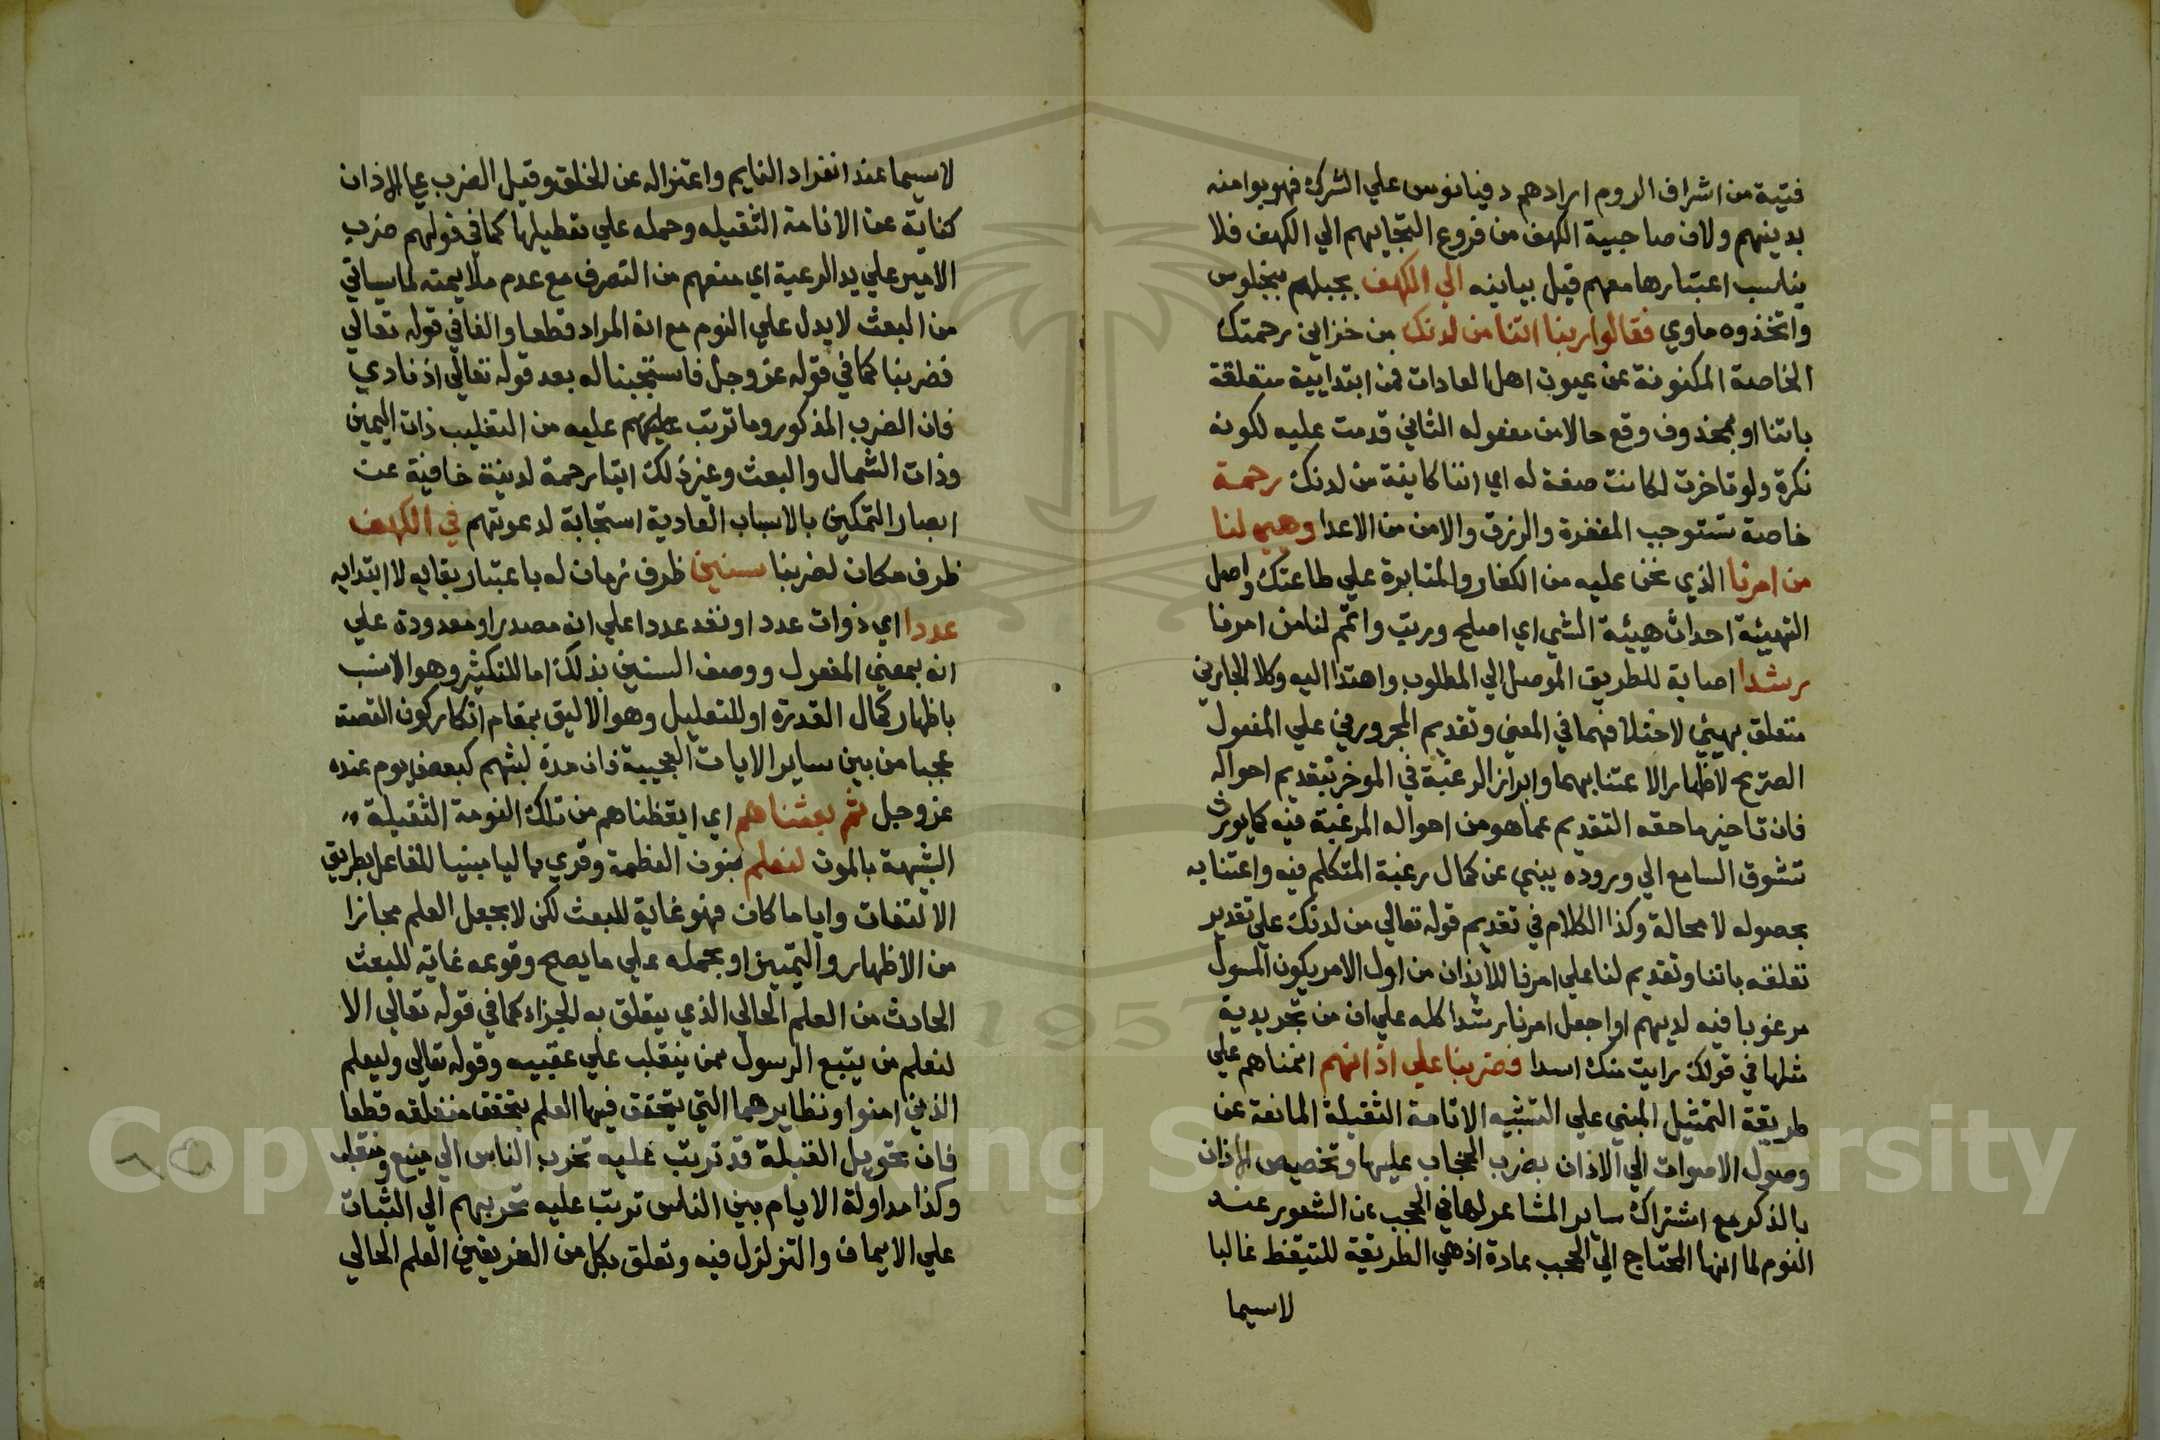 فتية من اشراف الروم ارادهم دقيانوس علي الشرك فهربوا منه
بدينهم ولان صاحبية الكهف من فروع التجايهم الي الكهف فلا
يناسب اعتبارها معهم قبل بيانه الي الكهف بجبلهم بنجلوس
واتخذوه ماوي فقالوا ربنا اتنا من لدنك من خزاين رحمتك
الخاصة المكنونة عن عيون اهل العادات فمن ابتدايية متعلقة
باتنا او بمحذوف وقع حالا من مفعوله الثاني قدمت عليه لكونه
نكرة ولو تاخرت لكانت صفة له اي اتنا كاينة من لدنك رحمة
خاصة تستوجب المغفرة والرزق والامن من الاعدا وهيي لنا
من امرنا الذي نحن عليه من الكفار والمثابرة علي طاعتك واصل
التهيئة احداث هيئة الشي اي اصلح ورتب واتمم لنا من امرنا
رشدا اصابة للطريق الموصل الي المطلوب واهتدا اليه وكلا الجارين
متعلق بهيئ لاختلافهما في المعني وتقديم المجرورين علي المفعول
الصريح لاظهار الاعتنا بهما وابراز الرغبة في الموخر بتقديم احواله
فان تاخير ما حقه التقديم عما هو من احواله المرغبة فيه كما يورث
تشوق السامع الي وروده ينبي عن كمال رغبة المتكلم فيه واعتنايه
بحصوله لا محالة وكذا الكلام في تقديم قوله تعالي من لدنك علي تقدير
تعلقه باتنا وتقديم لنا علي امرنا للايذان من اول الامر بكون المسول
مرغوبا فيه لديهم او اجعل امرنا رشدا كله علي ان من تجريدية
مثلها في قولك رايت منك اسدا فضربنا علي اذانهم انمناهم علي
طريقة التمثيل المبني علي التشبيه الانامة الثقيلة المانعة عن
وصول الاصوات الي الاذان بضرب الحجاب عليها وتخصيص الاذان
بالذكر مع اشتراك ساير المشاعر لها في الحجب عن الشعور عند
النوم لما انها المحتاج الي الحجب عادة اذ هي الطريقة للتيقظ غالبا
لاسيما
لاسيما عند انفراد النايم واعتزاله عن الخلق وقيل الضرب علي الاذان
كناية عن الانامة الثقيله وحمله علي تعطيلها كما في قولهم ضرب
الامير علي يد الرعية اي منعهم من التصرف مع عدم ملايمته لما سياتي
من البعث لا يدل علي النوم مع انه المراد قطعا والفا في قوله تعالي
فضربنا كما في قوله عز وجل فاستجبنا له بعد قوله تعالي اذ نادي
فان الضرب المذكور وما ترتب عليهم عليه من التقليب ذات اليمين
وذات الشمال والبعث وغير ذلك ايتا رحمة لدنية خافية عن
ابصار التمكين بالاسباب العادية استجابة لدعوتهم في الكهف
ظرف مكان لضربنا سنين ظرف زمان له باعتبار بقايه لا ابتدايه
عددا اي ذوات عدد او تعد عددا علي انه مصدر او معدودة علي
انه بمعني المفعول ووصف السنين بذلك اما للتكثير وهو الانسب
باظهار كمال القدرة او للتقليل وهو الاليق بمقام انكار كون القصة
عجبا من بين ساير الايات العجيبة فان مدة لبثهم كبعض يوم عنده
عز وجل ثم بعثناهم اي ايقظناهم من تلك النومة الثقيلة
الشبيهة بالموت لنعلم بنون العظمة وقري باليا مبنيا للفاعل بطريق
الالتفات وايا ما كان فهو غاية للبعث لكن لا بجعل العلم مجازا
من الاظهار والتمييز او بحمله علي ما يصح وقوعه غاية للبعث
الحادث من العلم الحالي الذي يتعلق به الجزاء كما في قوله تعالي الا
لنعلم من يتبع الرسول ممن ينقلب علي عقبيه وقوله تعالي وليعلم
الذين امنوا ونظايرهما التي يتحقق فيها العلم بتحقق متعلقه قطعا
فان تحويل القبلة قد ترتب عليه تحزب الناس الي متبع ومنقلب
وكذا مداولة الايام بين الناس ترتب عليه تحزبهم الي الثبات
علي الايمان والتزلزل فيه وتعلق بكل من الفريقين العلم الحالي
Copyright © King Saud University
1957